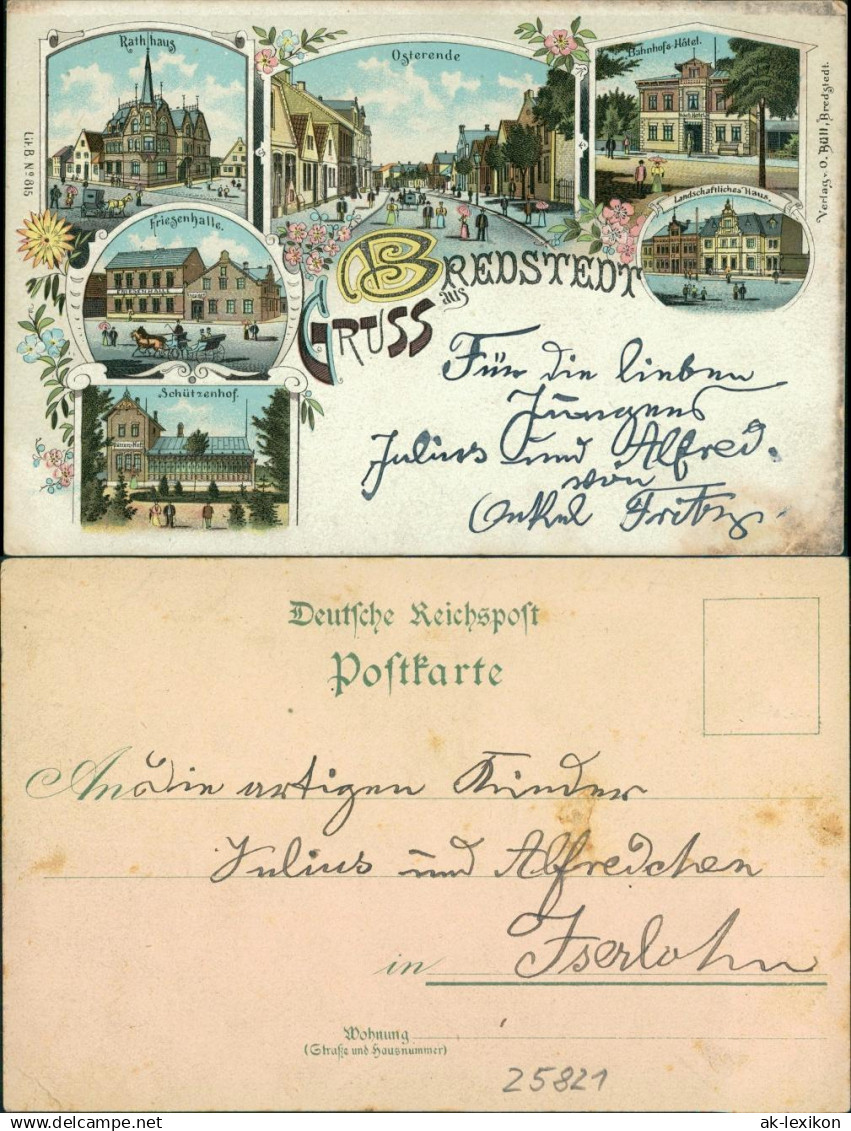 Rathhaus
Osterende
Bahnhofs-Hôtel.
Lit. B. Nº 815
Verlag v. O. Büll, Bredstedt.
Friesenhalle.
FRIESENHALLE
Landschaftliches Haus.
Schützenhof.
GRUSS
aus
BREDSTEDT
Für die lieben
Jungens
Julius und Alfred.
von
Onkel Fritz.
Deutsche Reichspost
Postkarte
An die artigen Kinder
Julius und Alfredchen
in Iserlohn
Wohnung
(Straße und Hausnummer)
25821
oldthing.de
ak-lexikon